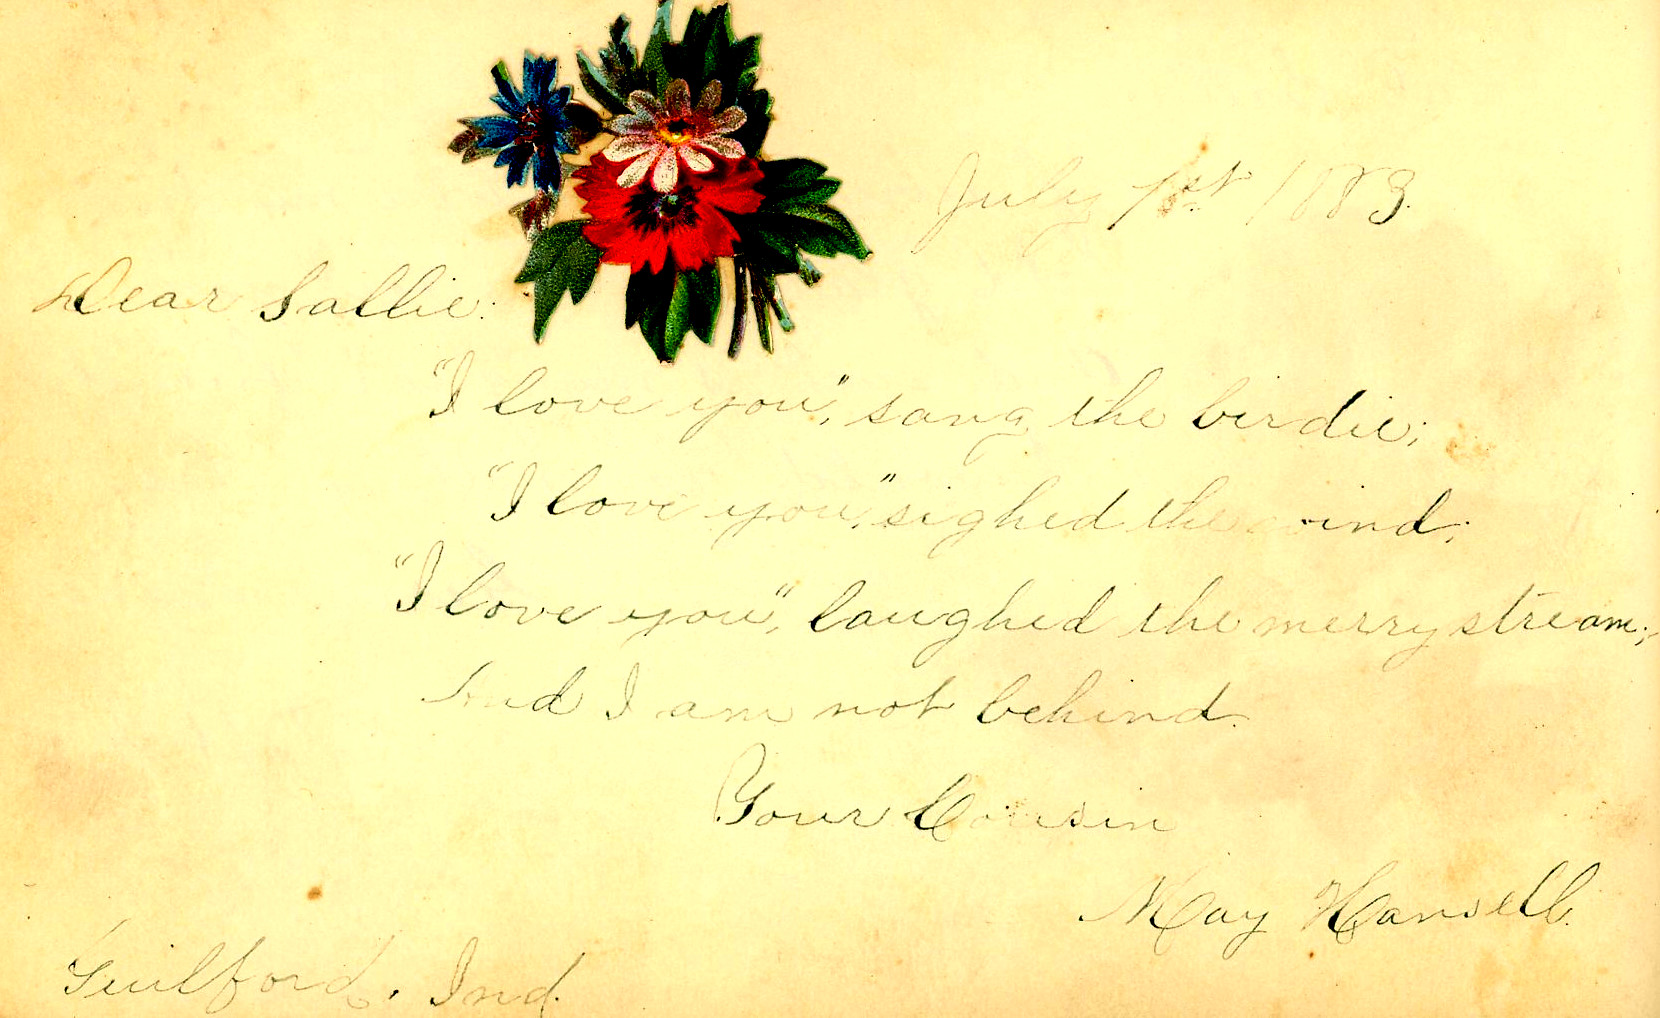 July 1st 1883.
Dear Sallie:
"I love you", sang the birdie;
"I love you," sighed the wind;
"I love you", laughed the merry stream;
And I am not behind.
Your Cousin
May Hansell.
Guilford, Ind.